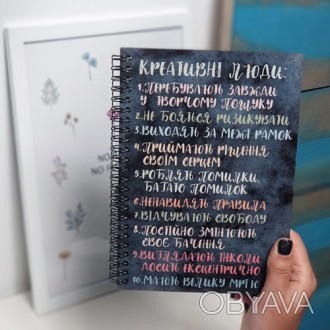 КРЕАТИВНІ ЛЮДИ:
1. ПЕРЕБУВАЮТЬ ЗАВЖДИ
У ТВОРЧОМУ ПОШУКУ
2. НЕ БОЯТЬСЯ РИЗИКУВАТИ
3. ВИХОДЯТЬ ЗА МЕЖІ РАМОК
4. ПРИЙМАЮТЬ РІШЕННЯ
СВОЇМ СЕРЦЕМ
5. РОБЛЯТЬ ПОМИЛКИ,
БАГАТО ПОМИЛОК
6. НЕНАВИДЯТЬ ПРАВИЛА
7. ВІДЧУВАЮТЬ СВОБОДУ
8. ПОСТІЙНО ЗМІНЮЮТЬ
СВОЄ БАЧЕННЯ
9. ВИГЛЯДАЮТЬ ІНКОЛИ
ДОСИТЬ ЕКСЦЕНТРИЧНО
10. МАЮТЬ ВЕЛИКУ МРІЮ
NO
NO
OBYAVA